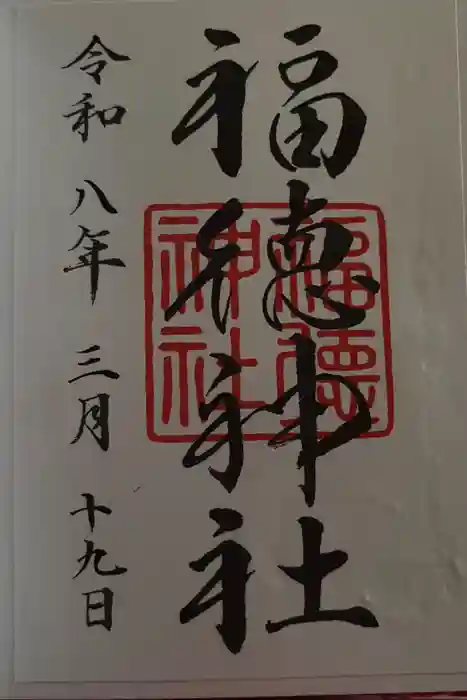 福徳神社
福徳神社
令和八年三月十九日